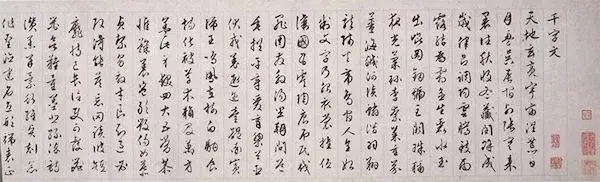 千字文
天地玄黃宇宙洪荒日
月盈昃辰宿列張寒來
暑往秋收冬藏閏餘成
歲律呂調陽雲騰致雨
露結為霜金生麗水玉
出崑岡劍號巨闕珠稱
夜光果珍李柰菜重芥
薑海鹹河淡鱗潛羽翔
龍師火帝鳥官人皇始
制文字乃服衣裳推位
讓國有虞陶唐弔民伐
罪周發商湯坐朝問道
垂拱平章愛育黎首臣
伏戎羌遐邇壹體率賓
歸王鳴鳳在樹白駒食
場化被草木賴及萬方
蓋此身髮四大五常恭
惟鞠養豈敢毀傷女慕
貞絜男效才良知過必
改得能莫忘罔談彼短
靡恃己長信使可覆器
欲難量墨悲絲染詩
讚羔羊景行維賢剋念
作聖德建名立形端表正